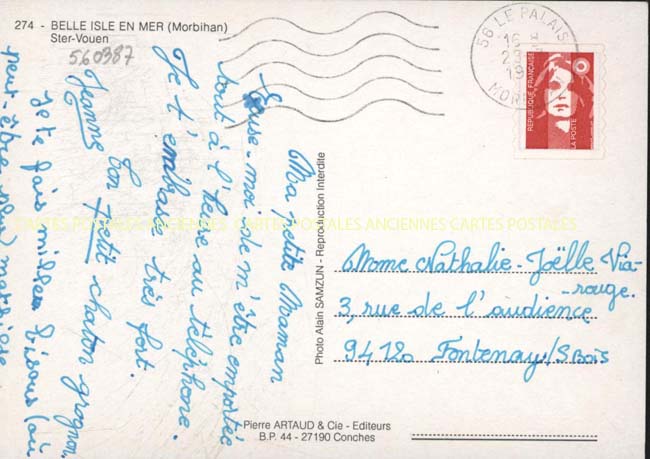 274 - BELLE ISLE EN MER (Morbihan)
Ster-Vouen
560387
Ma petite Maman
Excuse-moi de m'être emportée
tout à l'heure au téléphone.
Je t'embrasse très fort.
Jeanne ton petit chaton grognon.
Je te fais milles bisous (ou
peut-être plus)
Photo Alain SAMZUN - Reproduction Interdite
56 LE PALAIS
16 H
19
MOR
REPUBLIQUE FRANÇAISE
LA POSTE
Mome Nathalie-Joëlle Via-
-rouge.
3, rue de l'audience
94120 Fontenay/S Bois
Pierre ARTAUD & Cie - Editeurs
B.P. 44 - 27190 Conches
CARTES POSTALES ANCIENNES CARTES POSTALES ANCIENNES CARTES POSTALES